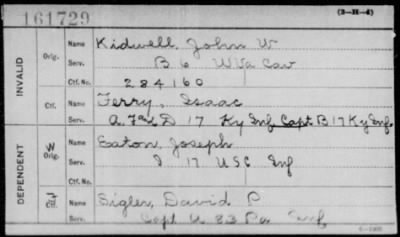 161729
(3-H-4)
INVALID
DEPENDENT
Orig. Name Kidwell, John W
Serv. B 6 W Va Cav
Ctf. No. 284160
Ctf. Name Terry, Isaac
Serv. A. & D 17 Ky Inf Capt B 17 Ky Inf
W Orig. Name Eaton, Joseph
Serv. I 17 USC Inf
Ctf. No.
Ctf. Name Sigler, David P
Serv. Capt 83 Pa Inf